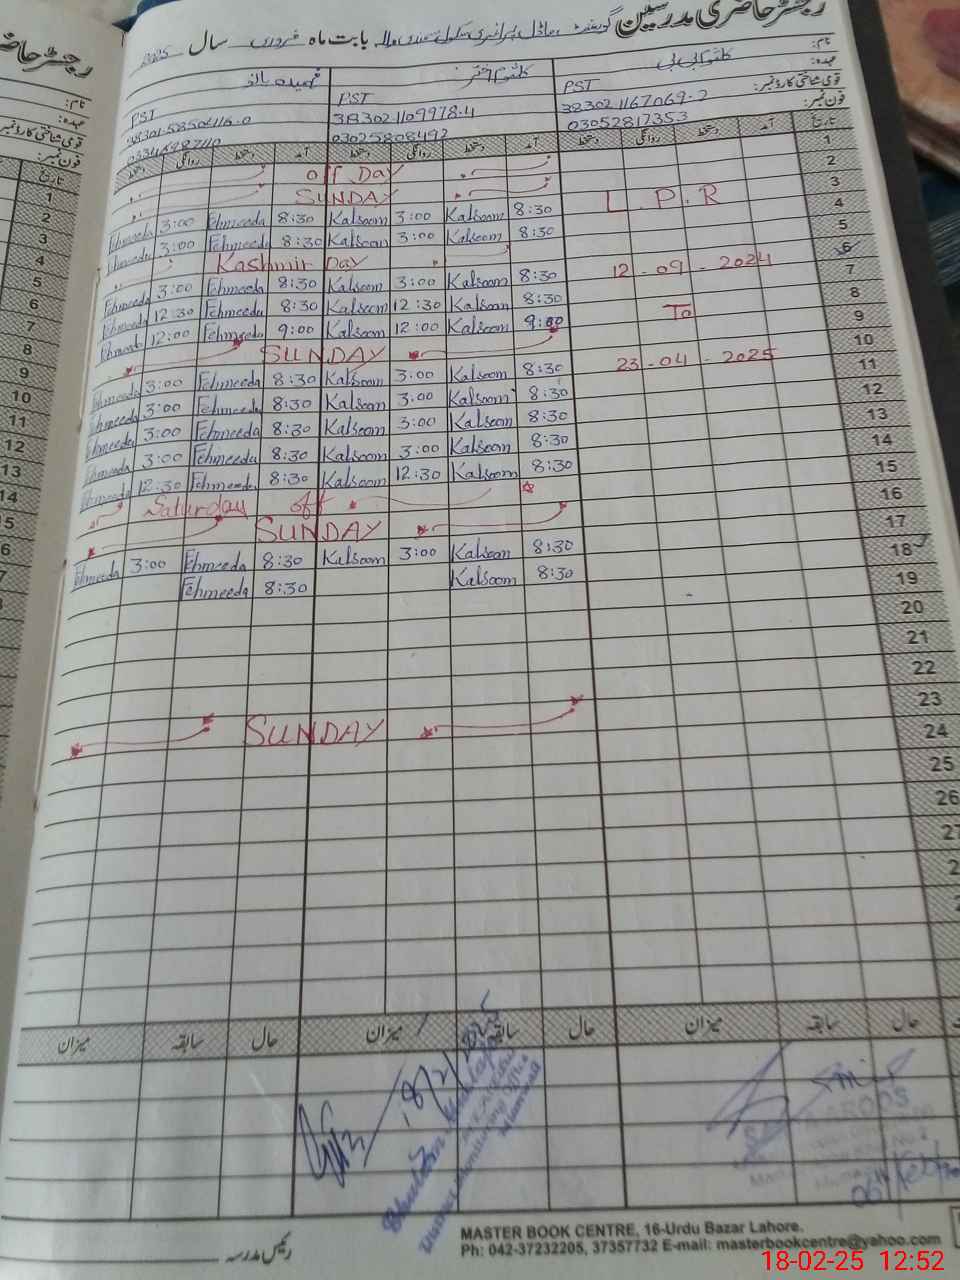 رجسٹر حاضری مدرسین گورنمنٹ ماڈل پرائمری سکول بابت ماہ فروری سال 2025
نام: کلثوم بی بی کلثوم اختر فہمیدہ بانو
عہدہ: PST PST PST
قومی شناختی کارڈ نمبر: 38302 1167069-2 38302 1109978-4
فون نمبر: 03052817353 03025808492
تاریخ آمد دستخط روانگی دستخط آمد دستخط روانگی دستخط آمد دستخط روانگی دستخط
1 off Day
2 SUNDAY
3 Kalsoom 3:00 Kalsoom 8:30 Fehmeeda 3:00 Fehmeeda 8:30
4 Kalsoom 3:00 Kalsoom 8:30 Fehmeeda 3:00 Fehmeeda 8:30 L.P.R
5 Kashmir Day
6 Kalsoom 3:00 Kalsoom 8:30 Fehmeeda 3:00 Fehmeeda 8:30
7 Kalsoom 12:30 Kalsoom 8:30 Fehmeeda 12:30 Fehmeeda 8:30 12-09-2024
8 Kalsoom 12:00 Kalsoom 9:00 Fehmeeda 12:00 Fehmeeda 9:00
9 SUNDAY To
10 Kalsoom 3:00 Kalsoom 8:30 Fehmeeda 3:00 Fehmeeda 8:30
11 Kalsoom 3:00 Kalsoom 8:30 Fehmeeda 3:00 Fehmeeda 8:30 23-04-2025
12 Kalsoom 3:00 Kalsoom 8:30 Fehmeeda 3:00 Fehmeeda 8:30
13 Kalsoom 3:00 Kalsoom 8:30 Fehmeeda 3:00 Fehmeeda 8:30
14 Kalsoom 12:30 Kalsoom 8:30 Fehmeeda 12:30 Fehmeeda 8:30
15 Saturday off
16 SUNDAY
17 Kalsoom 3:00 Kalsoom 8:30 Fehmeeda 3:00 Fehmeeda 8:30
18 Kalsoom 8:30 Fehmeeda 8:30
19
20
21
22
23 SUNDAY
24
25
26
27
حال سابقہ میزان حال سابقہ میزان حال سابقہ میزان
18/2/2025
رئیس مدرسہ
MASTER BOOK CENTRE, 16-Urdu Bazar Lahore.
Ph: 042-37232205, 37357732 E-mail: masterbookcentre@yahoo.com
18-02-25 12:52
رجسٹر
نام:
عہدہ:
قومی شناختی کارڈ نمبر:
فون نمبر:
تاریخ
1
2
3
4
5
6
7
8
9
10
11
12
13
14